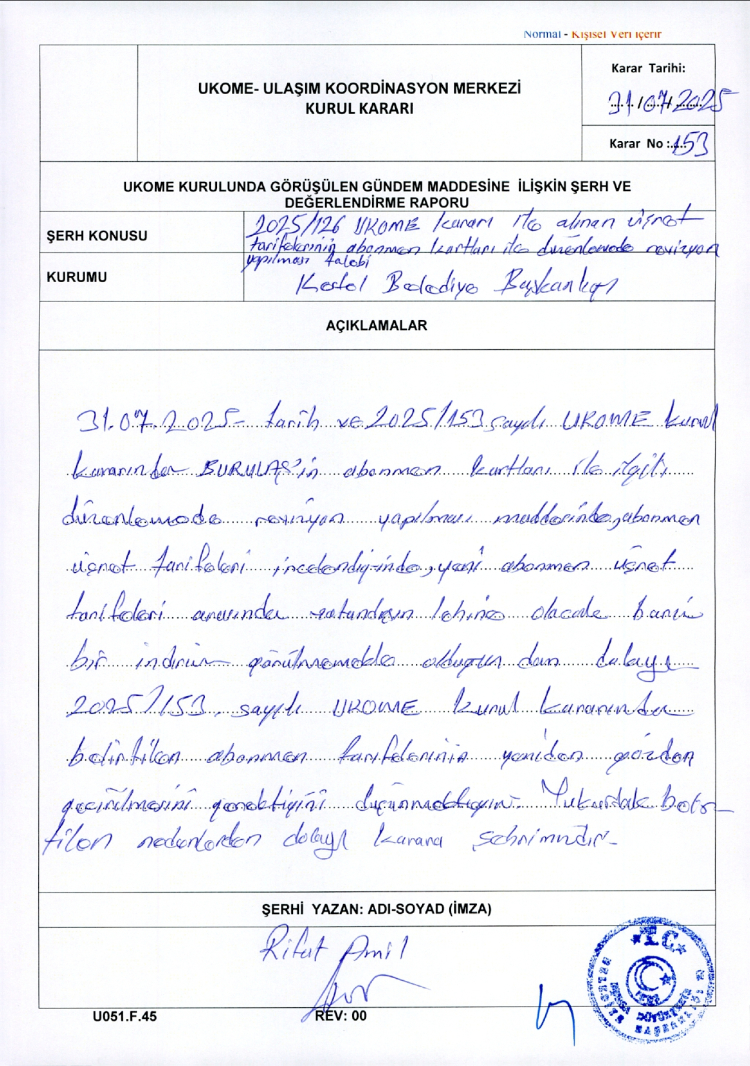 Normal - Kişisel Veri içerir
UKOME- ULAŞIM KOORDİNASYON MERKEZİ
KURUL KARARI
Karar Tarihi:
31/07/2025
Karar No :153
UKOME KURULUNDA GÖRÜŞÜLEN GÜNDEM MADDESİNE İLİŞKİN ŞERH VE
DEĞERLENDİRME RAPORU
ŞERH KONUSU
2025/126 UKOME kararı ile alınan ücret
tarifelerinin abonman kartları ile düzenlemede revizyon
yapılması talebi
KURUMU
Kestel Belediye Başkanlığı
AÇIKLAMALAR
31.07.2025- tarih ve 2025/153 sayılı UKOME kurul
kararında BURULAŞ'in abonman kartları ile ilgili
düzenlemede revizyon yapılması maddesinde, abonman
ücret tarifeleri incelendiğinde, yeni abonman ücret
tarifeleri arasında vatandaşın lehine olacak bariz
bir indirim görülmemekte olduğun dan dolayı
2025/153 sayılı UKOME kurul kararında
belirtilen abonman tarifelerinin yeniden gözden
geçirilmesini gerektiğini düşünmekteyim. Yukardak belir-
tilen nedenlerden dolayı karara şehrimizdir-
ŞERHİ YAZAN: ADI-SOYAD (İMZA)
Rifat Amil
U051.F.45
REV: 00
T.C.